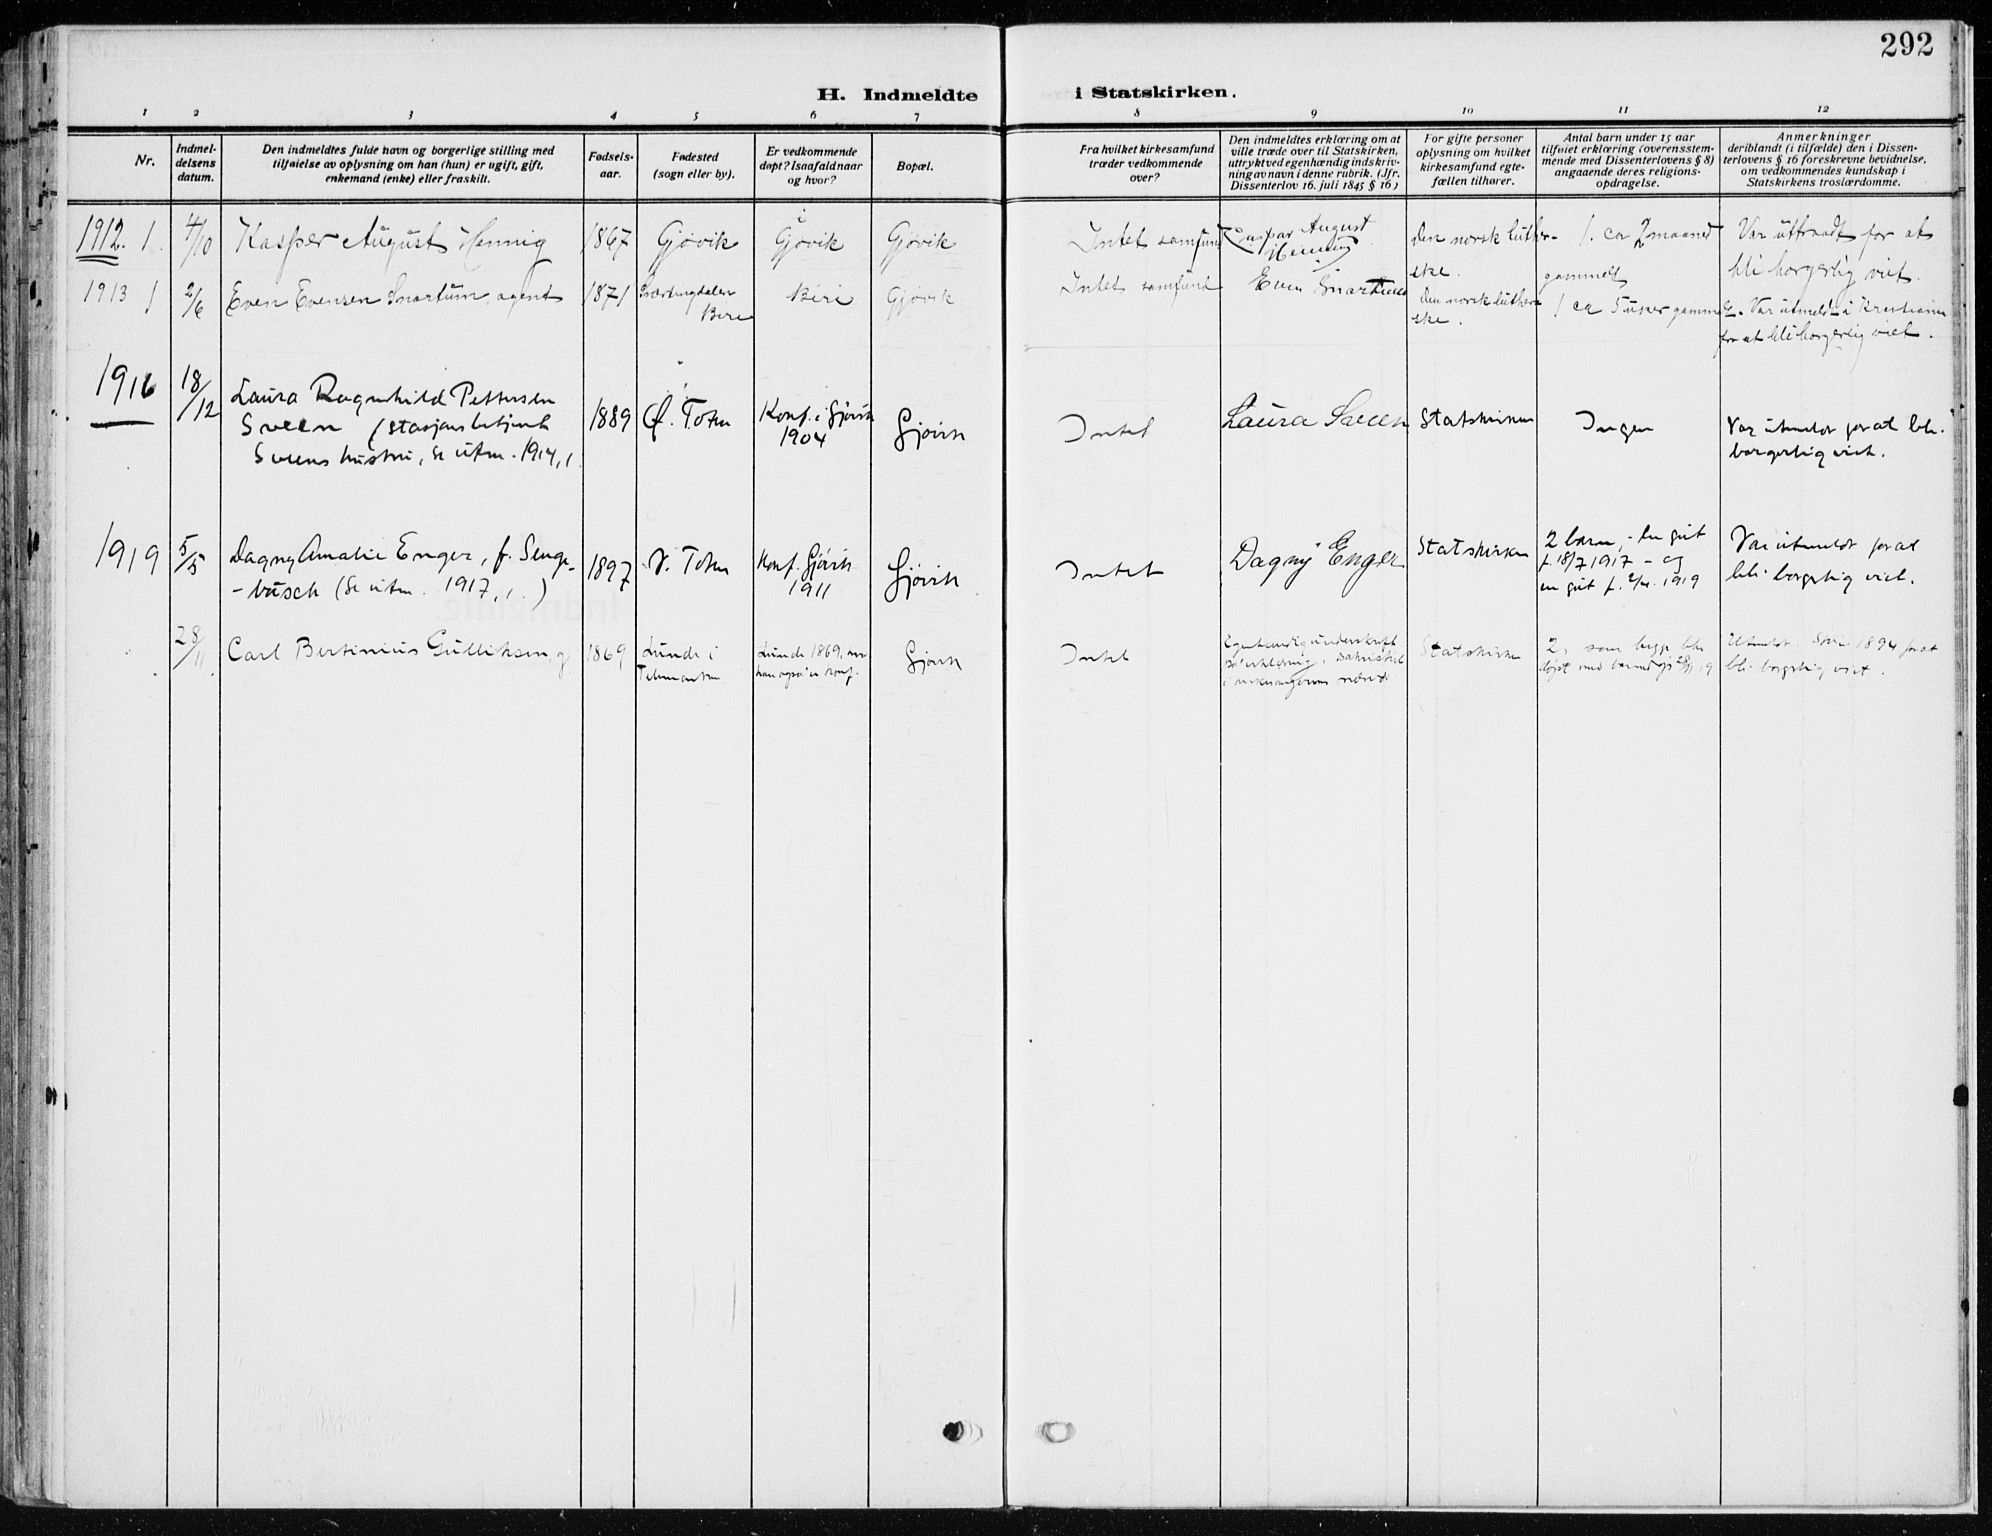 292
H. Indmeldte i Statskirken.
1 2 3 4 5 6 7 8 9 10 11 12
Nr.
Indmel-
delsens
datum.
Den indmeldtes fulde navn og borgerlige stilling med
tilføielse av oplysning om han (hun) er ugift, gift,
enkemand (enke) eller fraskilt.
Fødsels-
aar.
Fødested
(sogn eller by).
Er vedkommende
døpt? Isaafald naar
og hvor?
Bopæl.
Fra hvilket kirkesamfund
træder vedkommende
over?
Den indmeldtes erklæring om at
ville træde over til Statskirken,
uttrykt ved egenhændig indskriv-
ning av navn i denne rubrik. (Jfr.
Dissenterlov 16. juli 1845 § 16)
For gifte personer
oplysning om hvilket
kirkesamfund egte-
fællen tilhører.
Antal barn under 15 aar
tilføiet erklæring (overensstem-
mende med Dissenterlovens § 8)
angaaende deres religions-
opdragelse.
Anmerkninger
deriblandt (i tilfælde) den i Dissen-
terlovens § 16 foreskrevne bevidnelse,
om vedkommendes kundskap i
Statskirkens troslærdomme.
1912. 1.
4/10
Kasper August Hennig
1867
Gjøvik
Gjøvik
Gjøvik
Intet samfund
Caspar August
Hennig
Den norsk luther-
ske.
1. ca 2 maaned
gammelt
Var uttraadt for at
bli borgerlig viet.
1913 1
2/6
Even Evensen Snartum, agent
1871
Snertingdalen
Biri
Biri
Gjøvik
Intet samfund
Even Snartum
Den norsk luther-
ske.
1 ca 5 uker gammelt.
Var utmeldt i Kristiania
for at bli borgerlig viet.
1916
18/12
Laura Ragnhild Pettersen
Sveen (stasjonsbetjent
Sveens hustru, se utm. 1914, 1.
1889
Ø. Toten
Konf. i Gjøvik
1904
Gjøvik
Intet
Laura Sveen
Statskirken
Ingen
Var utmeldt for at bli
borgerlig viet.
1919
5/5
Dagny Amalie Enger, f. Senge-
-busch (Se utm. 1917, 1.)
1897
V. Toten
Konf. Gjøvik
1911
Gjøvik
Intet
Dagny Enger
Statskirken
2 barn, - en gut
f. 18/7 1917 - og
en gut f. 2/4. 1919
Var utmeldt for at
bli borgerlig viet.
28/11
Carl Bertinius Gulliksen, g
1869
Lunde i
Telemarken
Lunde 1869, hvor
han også er konf.
Gjøvik
Intet
Egenhendig underskrift
på erklæring i sakristiet
Statskirken
2, som begge blev
døpt
Utmeldt 1894 for at
bli borgerlig viet.